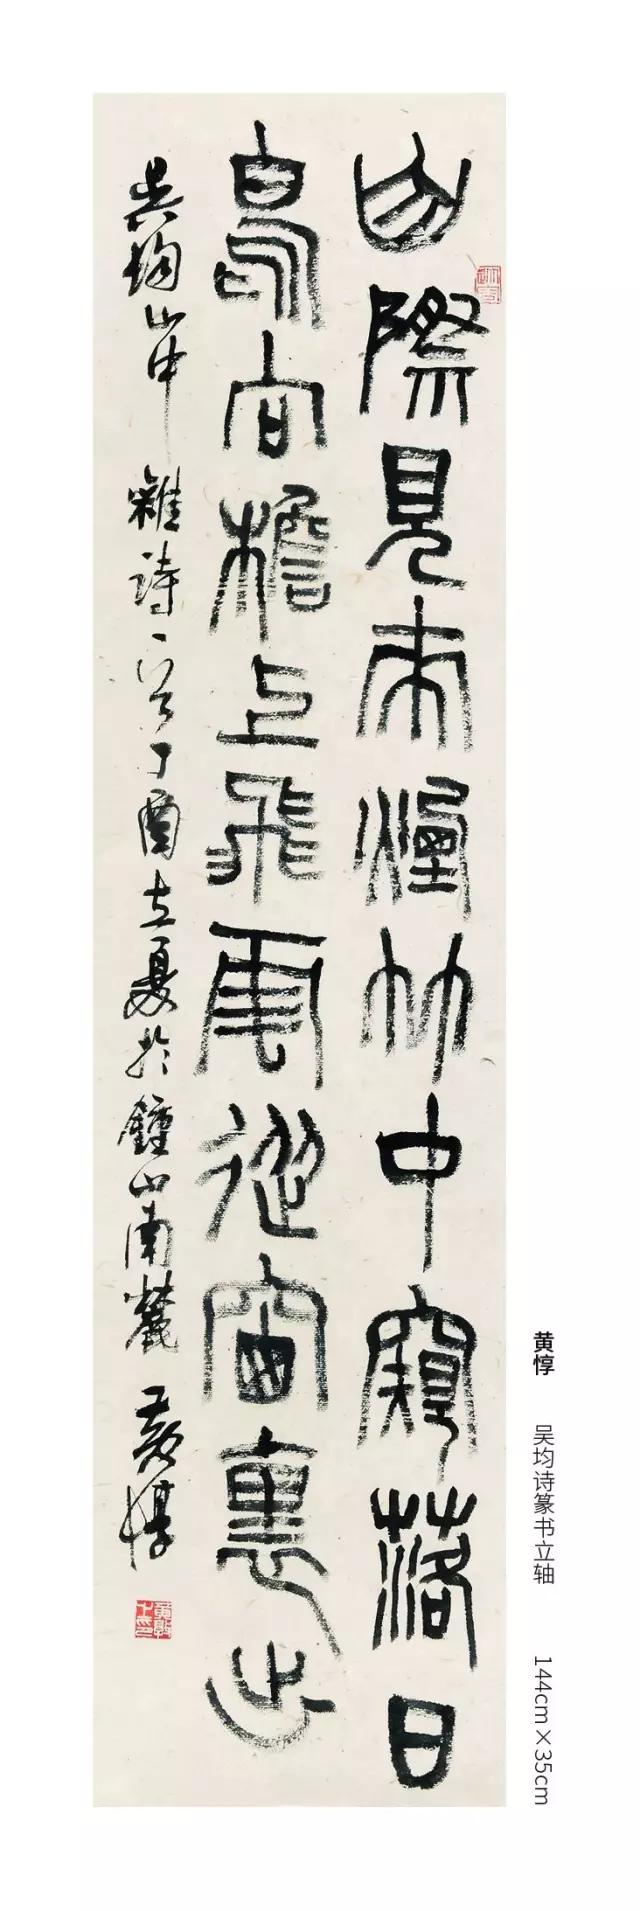 山際見來煙竹中窺落日
鳥向檐上飛雲從窗裏出
吴均山中雜詩一首丁酉立夏於鍾山南麓 黄惇
黄惇 吴均诗篆书立轴 144cm×35cm